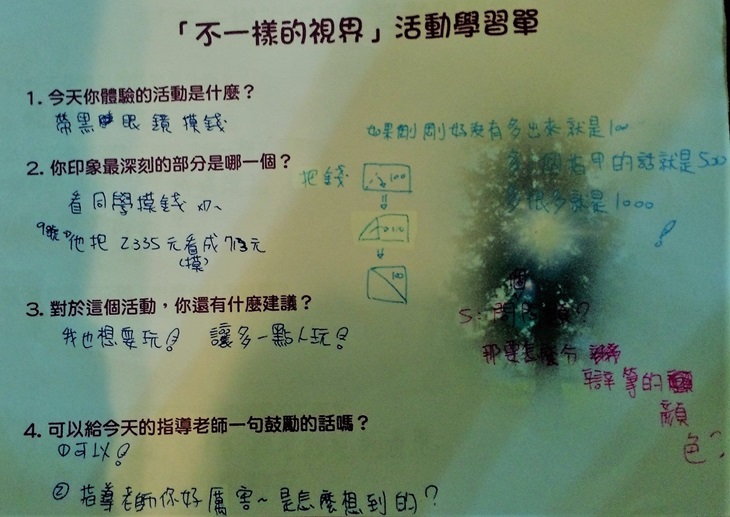 「不一樣的視界」活動學習單
1. 今天你體驗的活動是什麼？
帶黑眼鏡摸錢
如果剛剛好沒有多出來就是100
多一個指甲的話就是500
多很多就是1000
!
2. 你印象最深刻的部分是哪一個？
看同學摸錢
把錢
100
1000
100
9號
他把2335元看成713元
(摸)
3. 對於這個活動，你還有什麼建議？
我也想要玩! 讓多一點人玩!
個
5.
?
那要怎麼分
辯等的
顏
色?
4. 可以給今天的指導老師一句鼓勵的話嗎？
①可以!
② 指導老師你好厲害~是怎麼想到的？